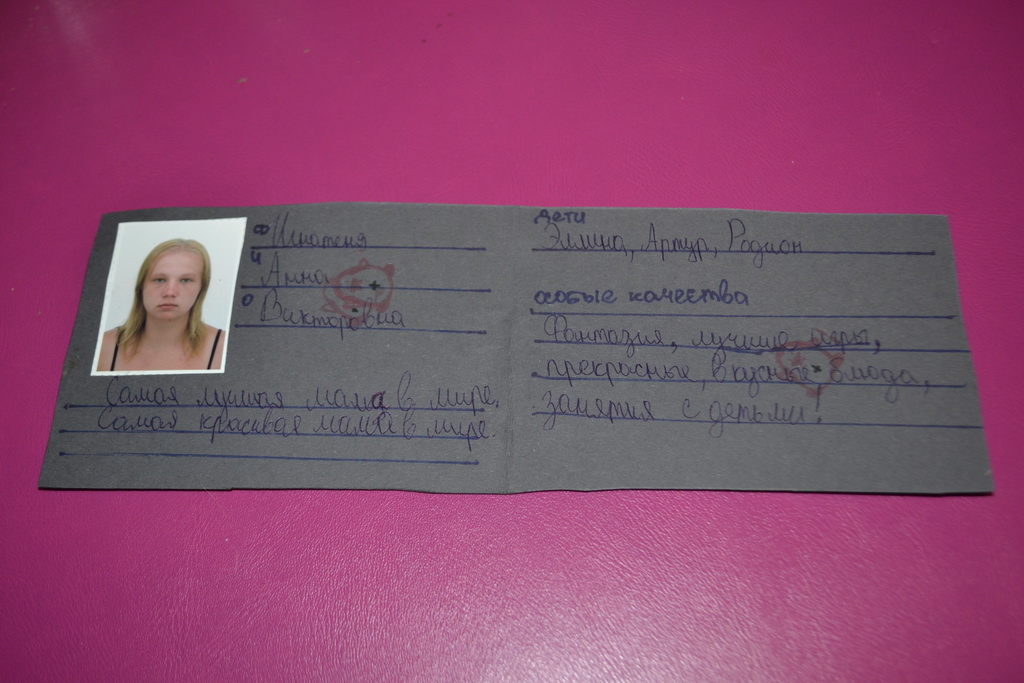 Ф Игнатеня
И Анна
О Викторовна
Самая лучшая мама в мире.
Самая красивая мама в мире.
дети
Элина, Артур, Родион
особые качества
Фантазия, лучшие игры,
прекрасные, вкусные блюда,
занятия с детьми!